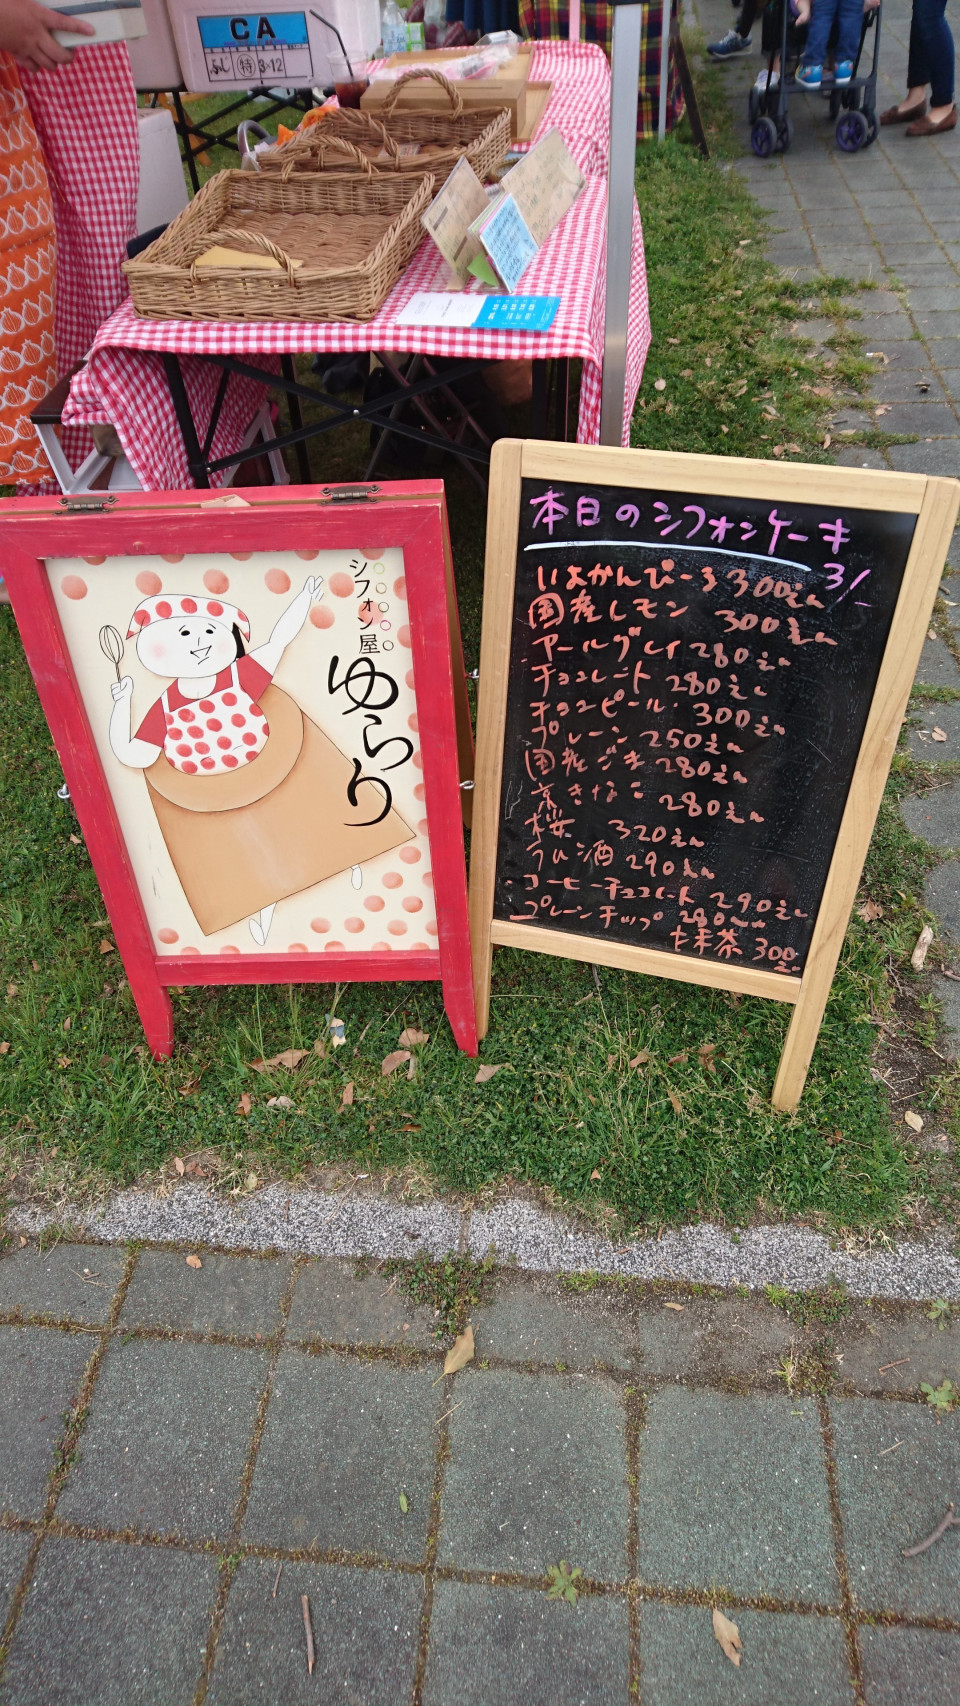 CA
ふじ 特 3-12
シフォン屋
ゆらり
本日のシフォンケーキ
いよかんぴーる 300えん
国産レモン 300えん
アールグレイ 280えん
チョコレート 280えん
チョコピール 300えん
プレーン 250えん
国産ごま 280えん
京きなこ 280えん
桜 320えん
ラム酒 290えん
コーヒーチョコレート 290えん
プレーンチップ 280えん
抹茶 300えん